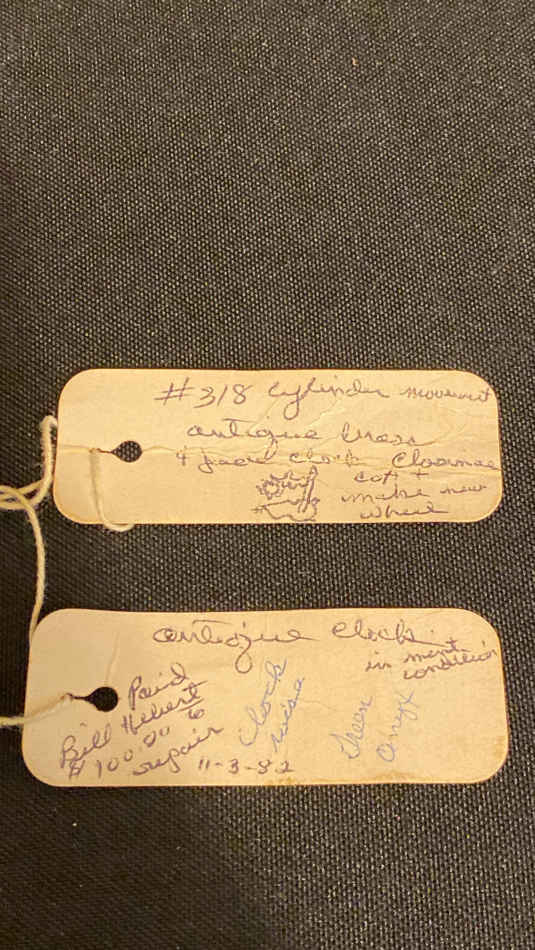 #318 cylinder movement
antique brass
4 jewel clock
cost +
make new
wheel
antique clock
in mint
condition
Paid
Bill Hebert
$100.00 to
repair
11-3-82
Clock
Green
Onyx